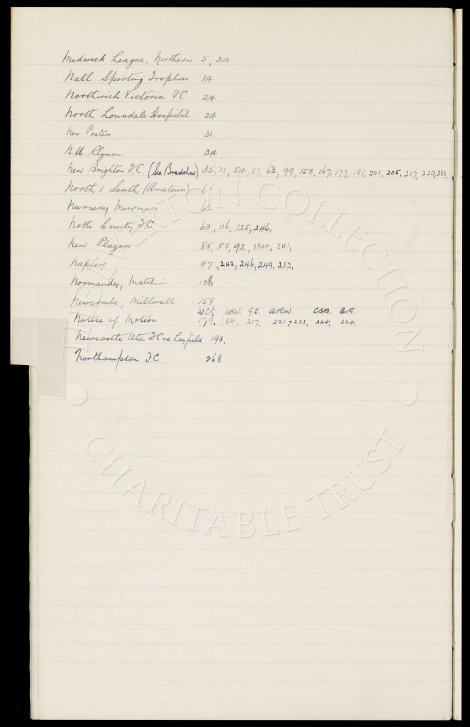 Midweek League, Northern 5, 34
Natl. Sporting Trophies 14
Northwich Victoria F.C 24
North Lonsdale Hospital 24
New Posters 31
N.U. 34
New Brighton F.C. (See Bradshaw) 35, 37, 54, 57, 63, 99, 158, 167, 177, 181, 201, 205, 217, 220
North v South (Amateur) 61
Nursery 62
Notts County F.C. 63, 116, 125, 246,
New Players 85, 88, 92, 134, 241,
Napier 97, 242, 246, 249, 252,
Normandy, Match in 136
Newcombe, Millwall 158
Notice of Motion 179, 184, 217, 221, 223, 224, 224,
Newcastle Utd F.C re Leyfield 193,
Northampton F.C. 268
EVERTON COLLECTION
CHARITABLE TRUST